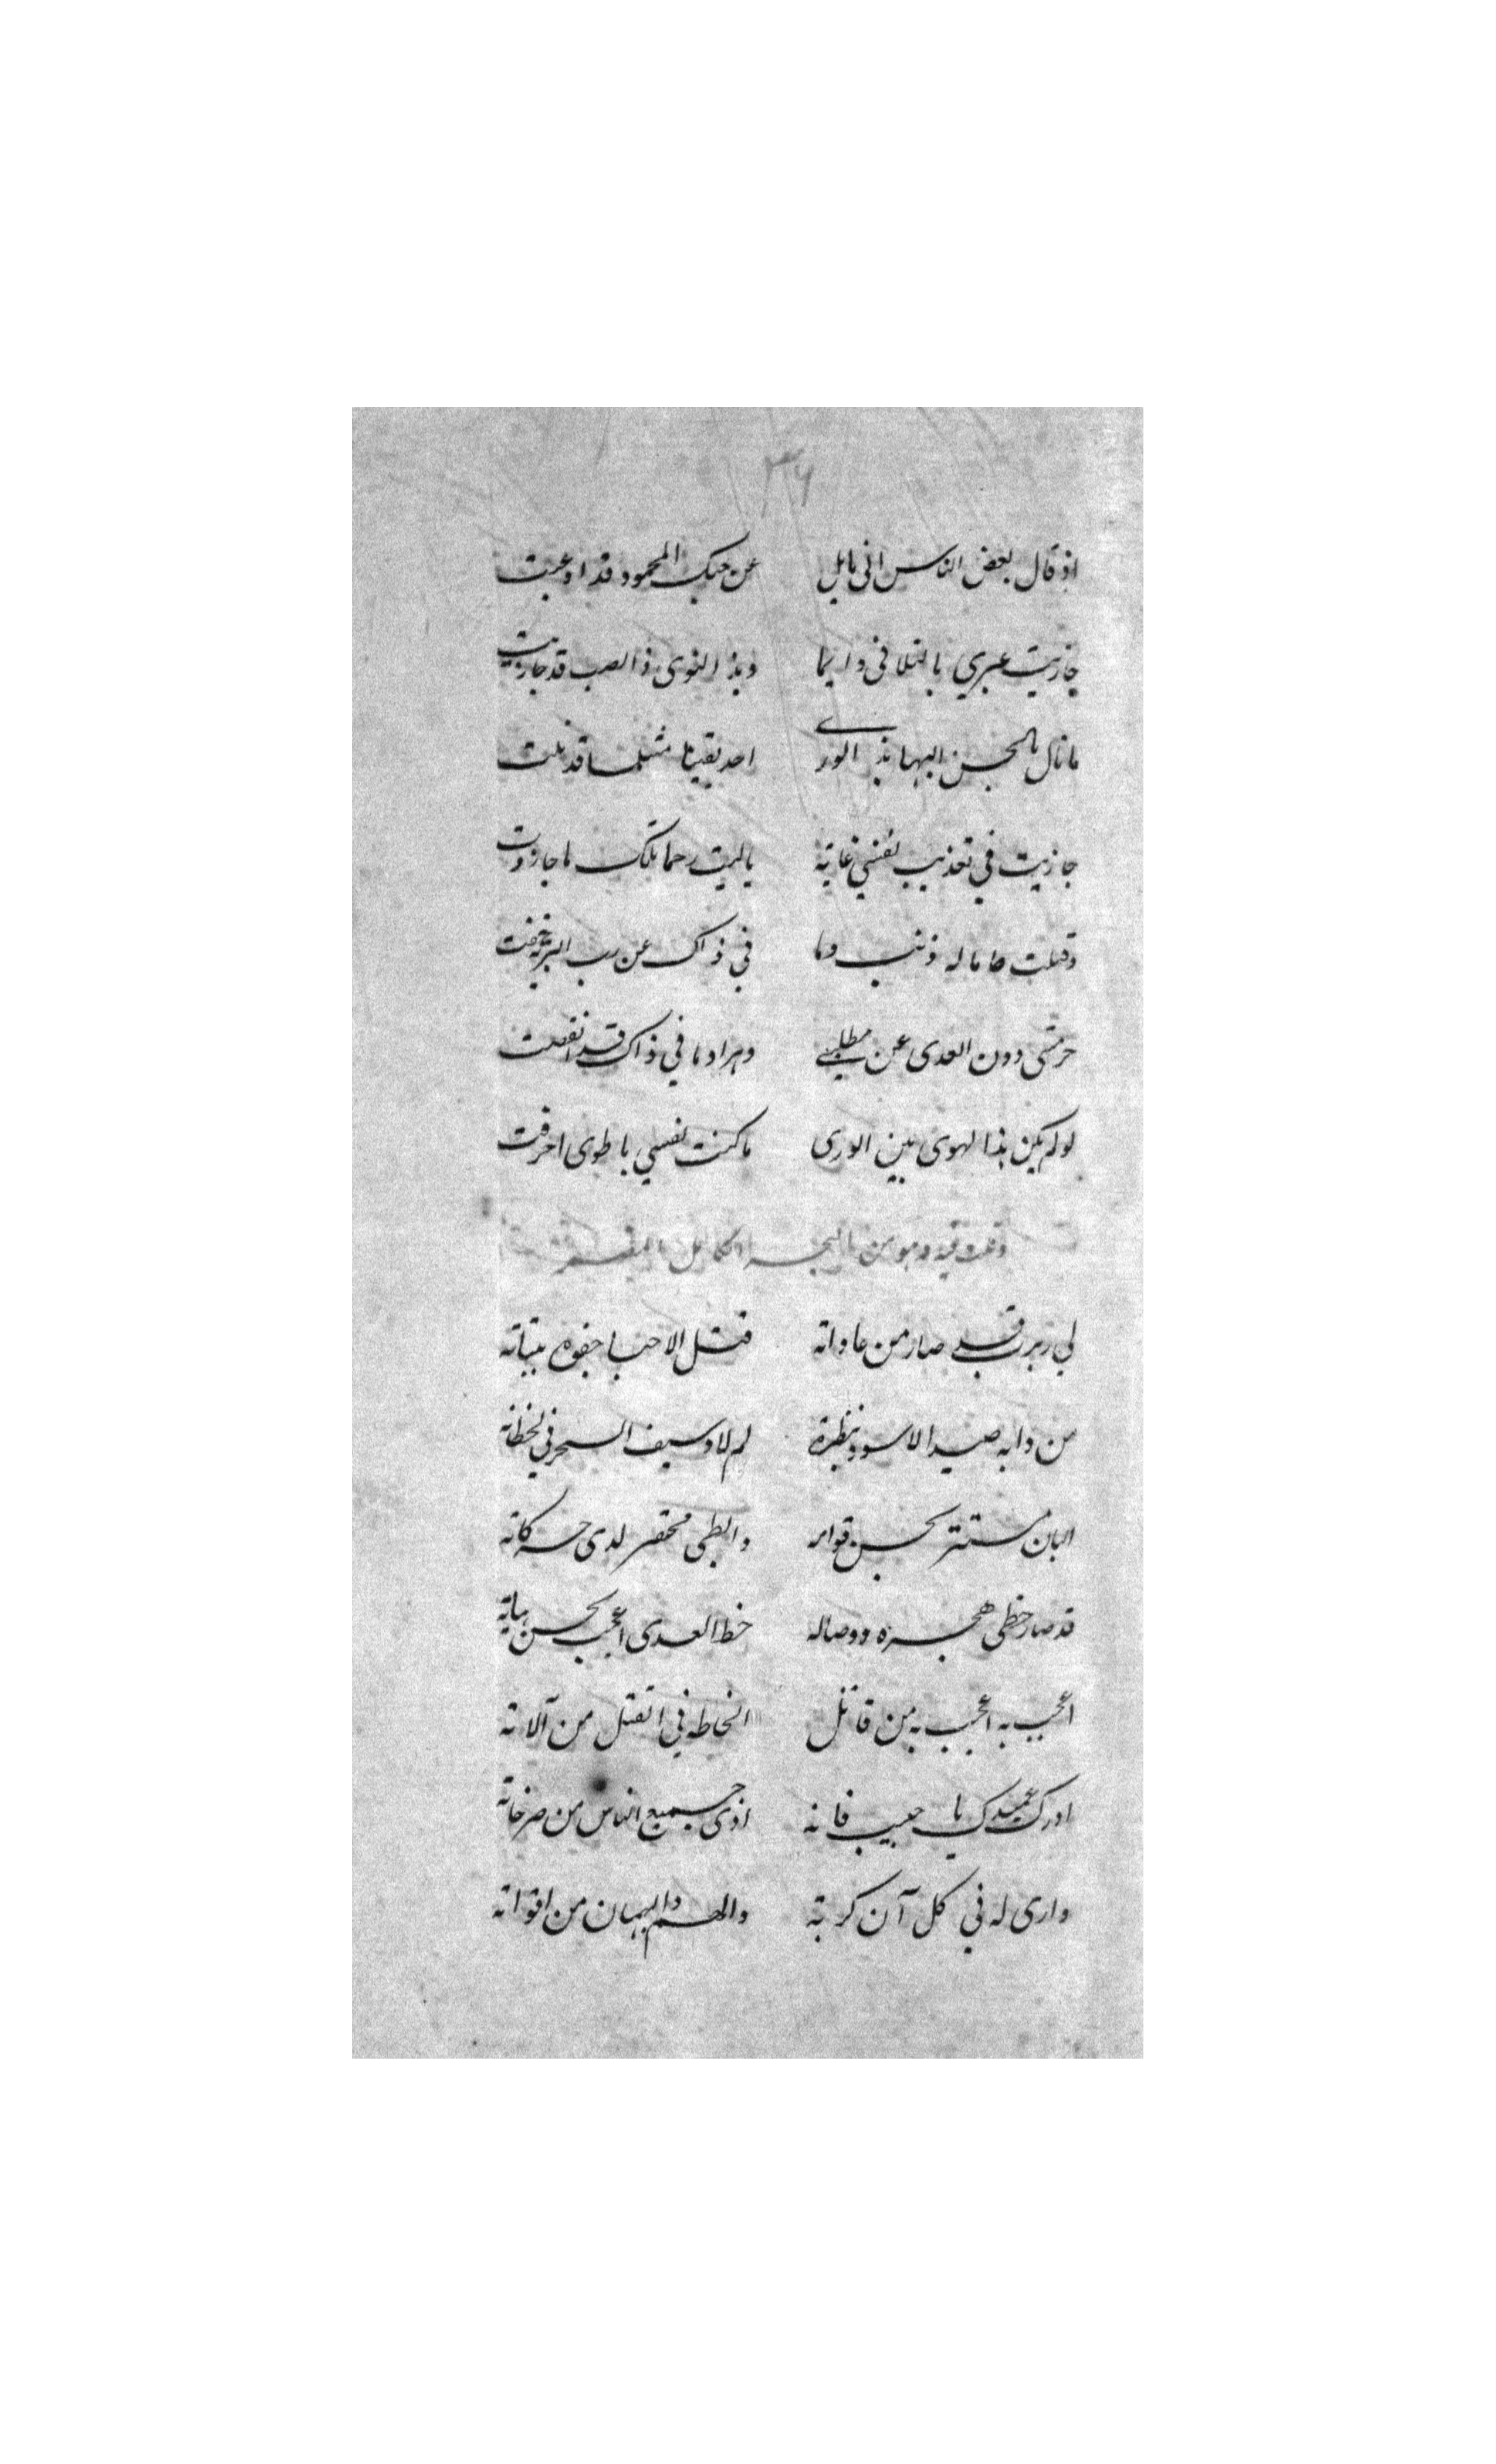 ٣٦
اذ قال بعض الناس انى مايل عن حبك المحمود قد اوعبت
جازيت غيري بالتلاقى دايما وبذ النوى ذا الصب قد جازيت
ما نال بالحسن البها بذ الورى احد يقينا مثلما قد نلت
جازيت في تعذيب نفسي غاية ياليت رحما بتلك ما جاوزت
وقتلت صا ماله ذنب وما في ذاك عن رب البرية خفت
حرمتنى دون العدى عن مطلبي ومراد ما في ذاك قد انصفت
لو لم يكن هذا لهوى بين الورى ما كنت نفسي بالهوى احرقت
وقلت وهو من البحر الكامل
لي ربرب قد صار من عاداته قتل الاحبا جفوه
من دابه صيد الاسود بنظرة لم لا وسيف السحر في لحظاته
البان مستتر بحسن قوامه والظبى محتقر لدى حركاته
قد صار حظى هجره ووصاله حظ العدى اعجب بحسن
اعجب به اعجب به من قاتل الحاظه في القتل من آلاته
ادرك عميدك يا حبيب فانه اذى جميع الناس من صرخاته
وارى له في كل آن كربة والهم والهيمان من اقواته